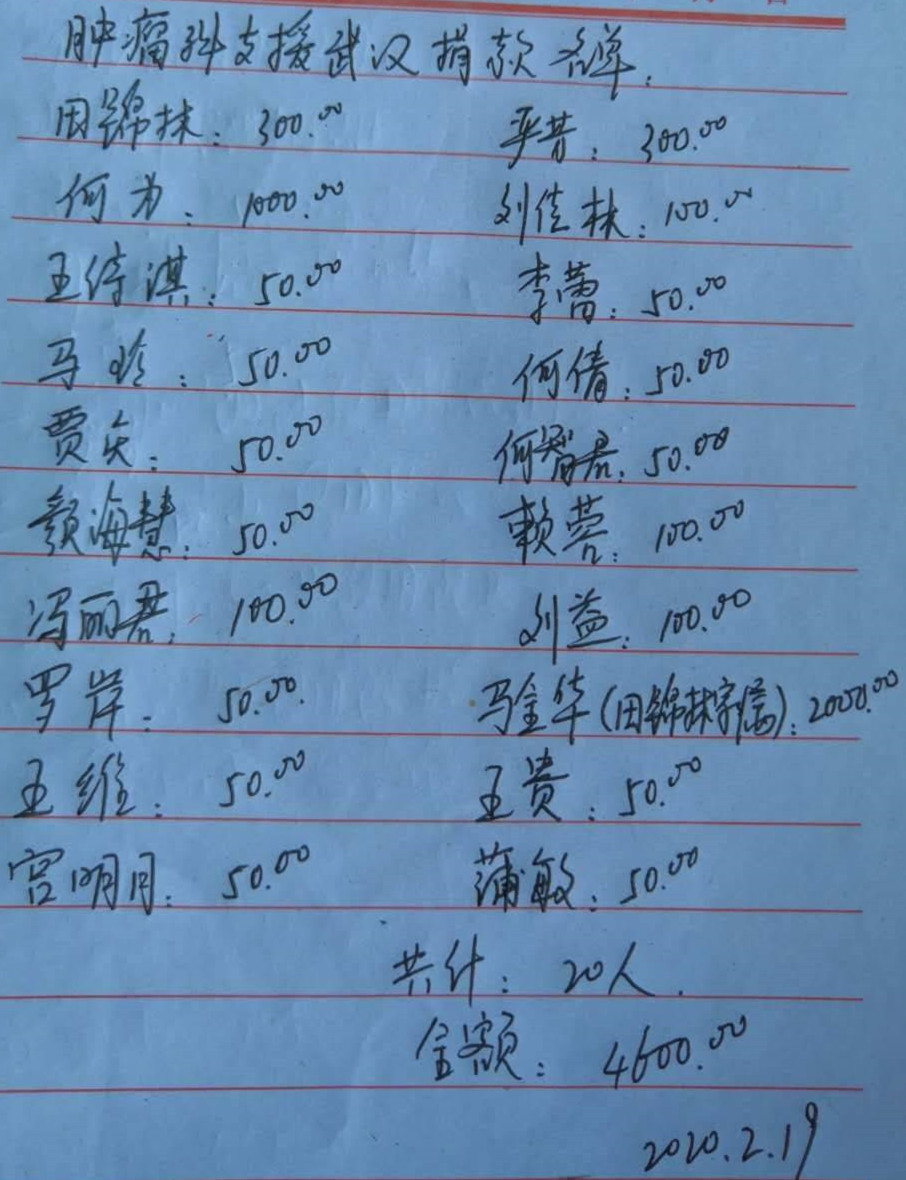 肿瘤科支援武汉捐款名单:
田锦林: 300.00 严苦: 300.00
何为: 1000.00 刘佳林: 100.00
王诗淇: 50.00 李蕾: 50.00
马玲: 50.00 何倩: 50.00
贾矢: 50.00 何智君: 50.00
颜海慧: 50.00 赖蓉: 100.00
冯丽君: 100.00 刘益: 100.00
罗岸: 50.00 马金华(田锦林家属): 2000.00
王维: 50.00 王贵: 50.00
宫明月: 50.00 蒲敏: 50.00
共计: 20人.
金额: 4600.00
2020.2.19